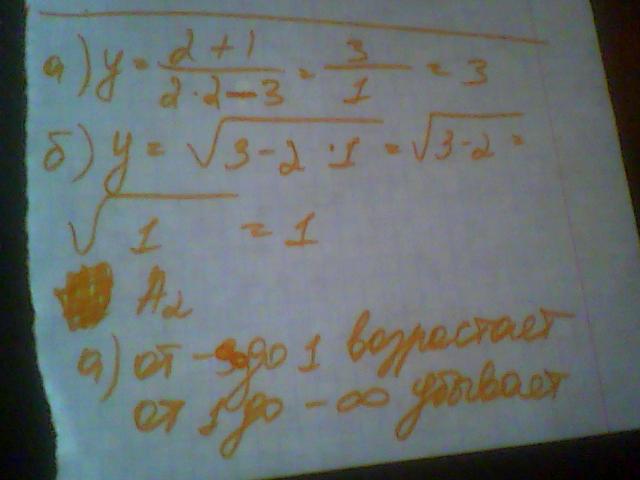 а) y = 2+1 / 2·2-3 = 3/1 = 3
б) y = √3-2·1 = √3-2 =
√1 = 1
А₂
а) от - до 1 возрастает
от 1 до -∞ убывает